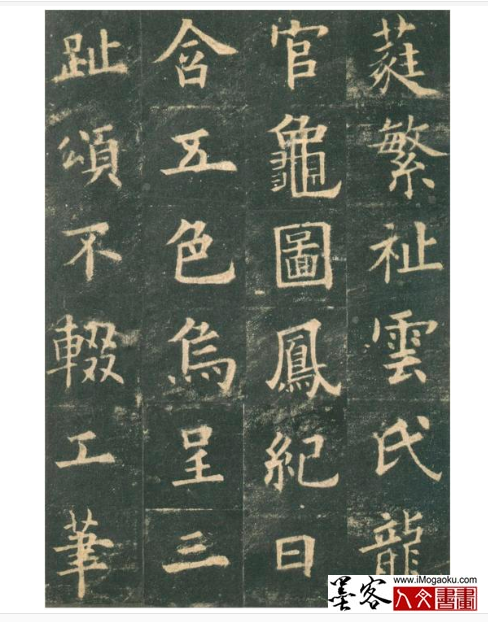 蕤繁祉雲氏龍
官龜圖鳳紀日
含五色烏呈三
趾頌不輟工筆
墨客
www.iMogaoku.com
人文書畫